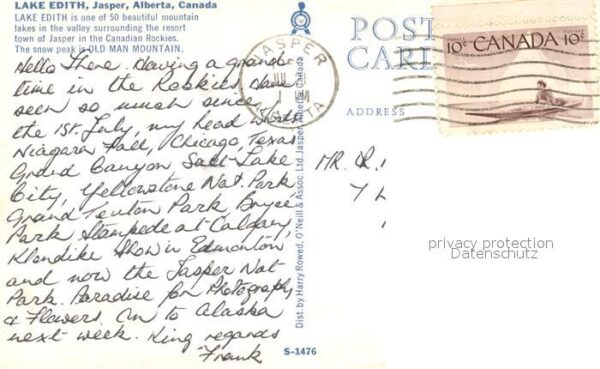 LAKE EDITH, Jasper, Alberta, Canada
LAKE EDITH is one of 50 beautiful mountain
lakes in the valley surrounding the resort
town of Jasper in the Canadian Rockies.
The snow peak is OLD MAN MOUNTAIN.
Hello There. Having a grand
time in the Rockies have
seen so much since
the 1st. July, my head whirls
Niagara Fall, Chicago, Texas
Grand Canyon Salt Lake
City, Yellowstone Nat. Park
Grand Teuton Park Bryce
Park Stampede at Calgary,
Klondike Show in Edmonton
and now the Jasper Nat
Park. Paradise for Photography
& Flowers. On to Alaska
next week. King regards
Frank
S-1476
Dist. by Harry Rowed, O'Neill & Assoc. Ltd. Jasper, Alberta, Canada
JASPER
ALBERTA
POST
CARD
ADDRESS
10¢ CANADA 10¢
MR.
privacy protection
Datenschutz